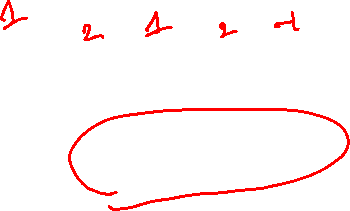 1 2 1 2 1